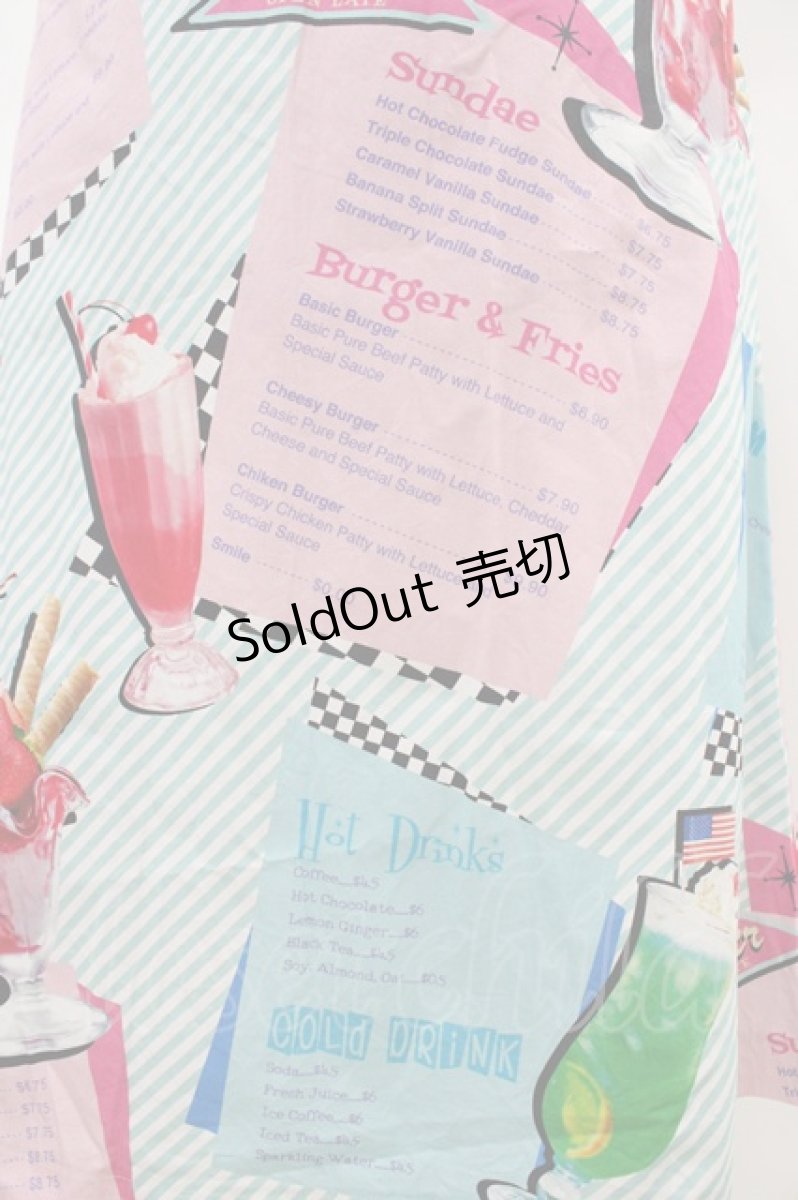 OPEN LATE
Sundae
Hot Chocolate Fudge Sundae $6.75
Triple Chocolate Sundae $7.75
Caramel Vanilla Sundae $7.75
Banana Split Sundae $8.75
Strawberry Vanilla Sundae $8.75
Burger & Fries
Basic Burger $6.90
Basic Pure Beef Patty with Lettuce and
Special Sauce
Cheesy Burger $7.90
Basic Pure Beef Patty with Lettuce, Cheddar
Cheese and Special Sauce
Chiken Burger $8.90
Crispy Chicken Patty with Lettuce
Special Sauce
Smile
SoldOut 売切
Hot Drinks
Coffee__$4.5
Hot Chocolate__$6
Lemon Ginger__$6
Black Tea__$4.5
Soy, Almond, Oat__$0.5
COLD DRINK
Soda__$4.5
Fresh Juice__$6
Ice Coffee__$6
Iced Tea__$4.5
Sparkling Water__$4.5
$6.75
$7.75
$7.75
$8.75
$8.75